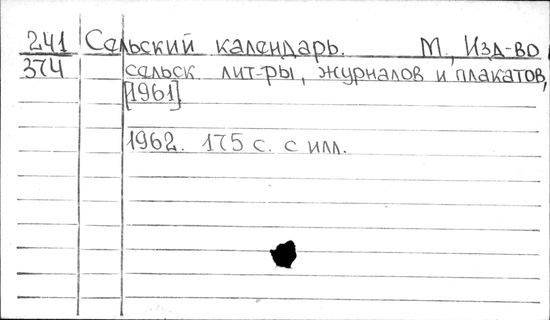 241 Сельский календарь. М., Изд-во
374 сельск. лит-ры, журналов и плакатов,
[1961]
1962. 175 с. с илл.